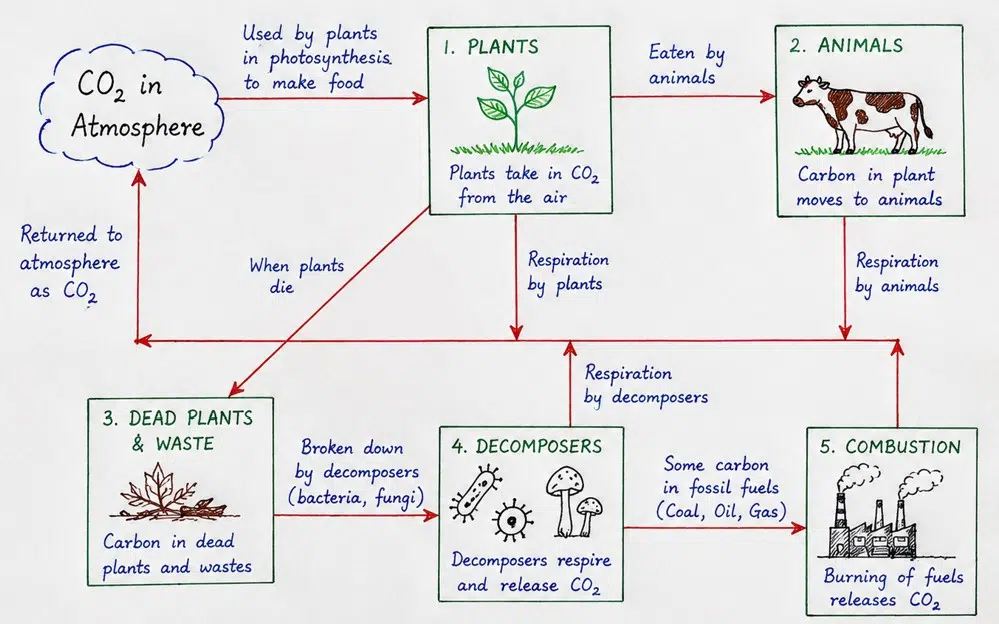 CO₂ in
Atmosphere
Used by plants
in photosynthesis
to make food
1. PLANTS
Plants take in CO₂
from the air
Eaten by
animals
2. ANIMALS
Carbon in plant
moves to animals
Returned to
atmosphere
as CO₂
When plants
die
Respiration
by plants
Respiration
by animals
3. DEAD PLANTS
& WASTE
Carbon in dead
plants and wastes
Broken down
by decomposers
(bacteria, fungi)
Respiration
by decomposers
4. DECOMPOSERS
Decomposers respire
and release CO₂
Some carbon
in fossil fuels
(Coal, Oil, Gas)
5. COMBUSTION
Burning of fuels
releases CO₂